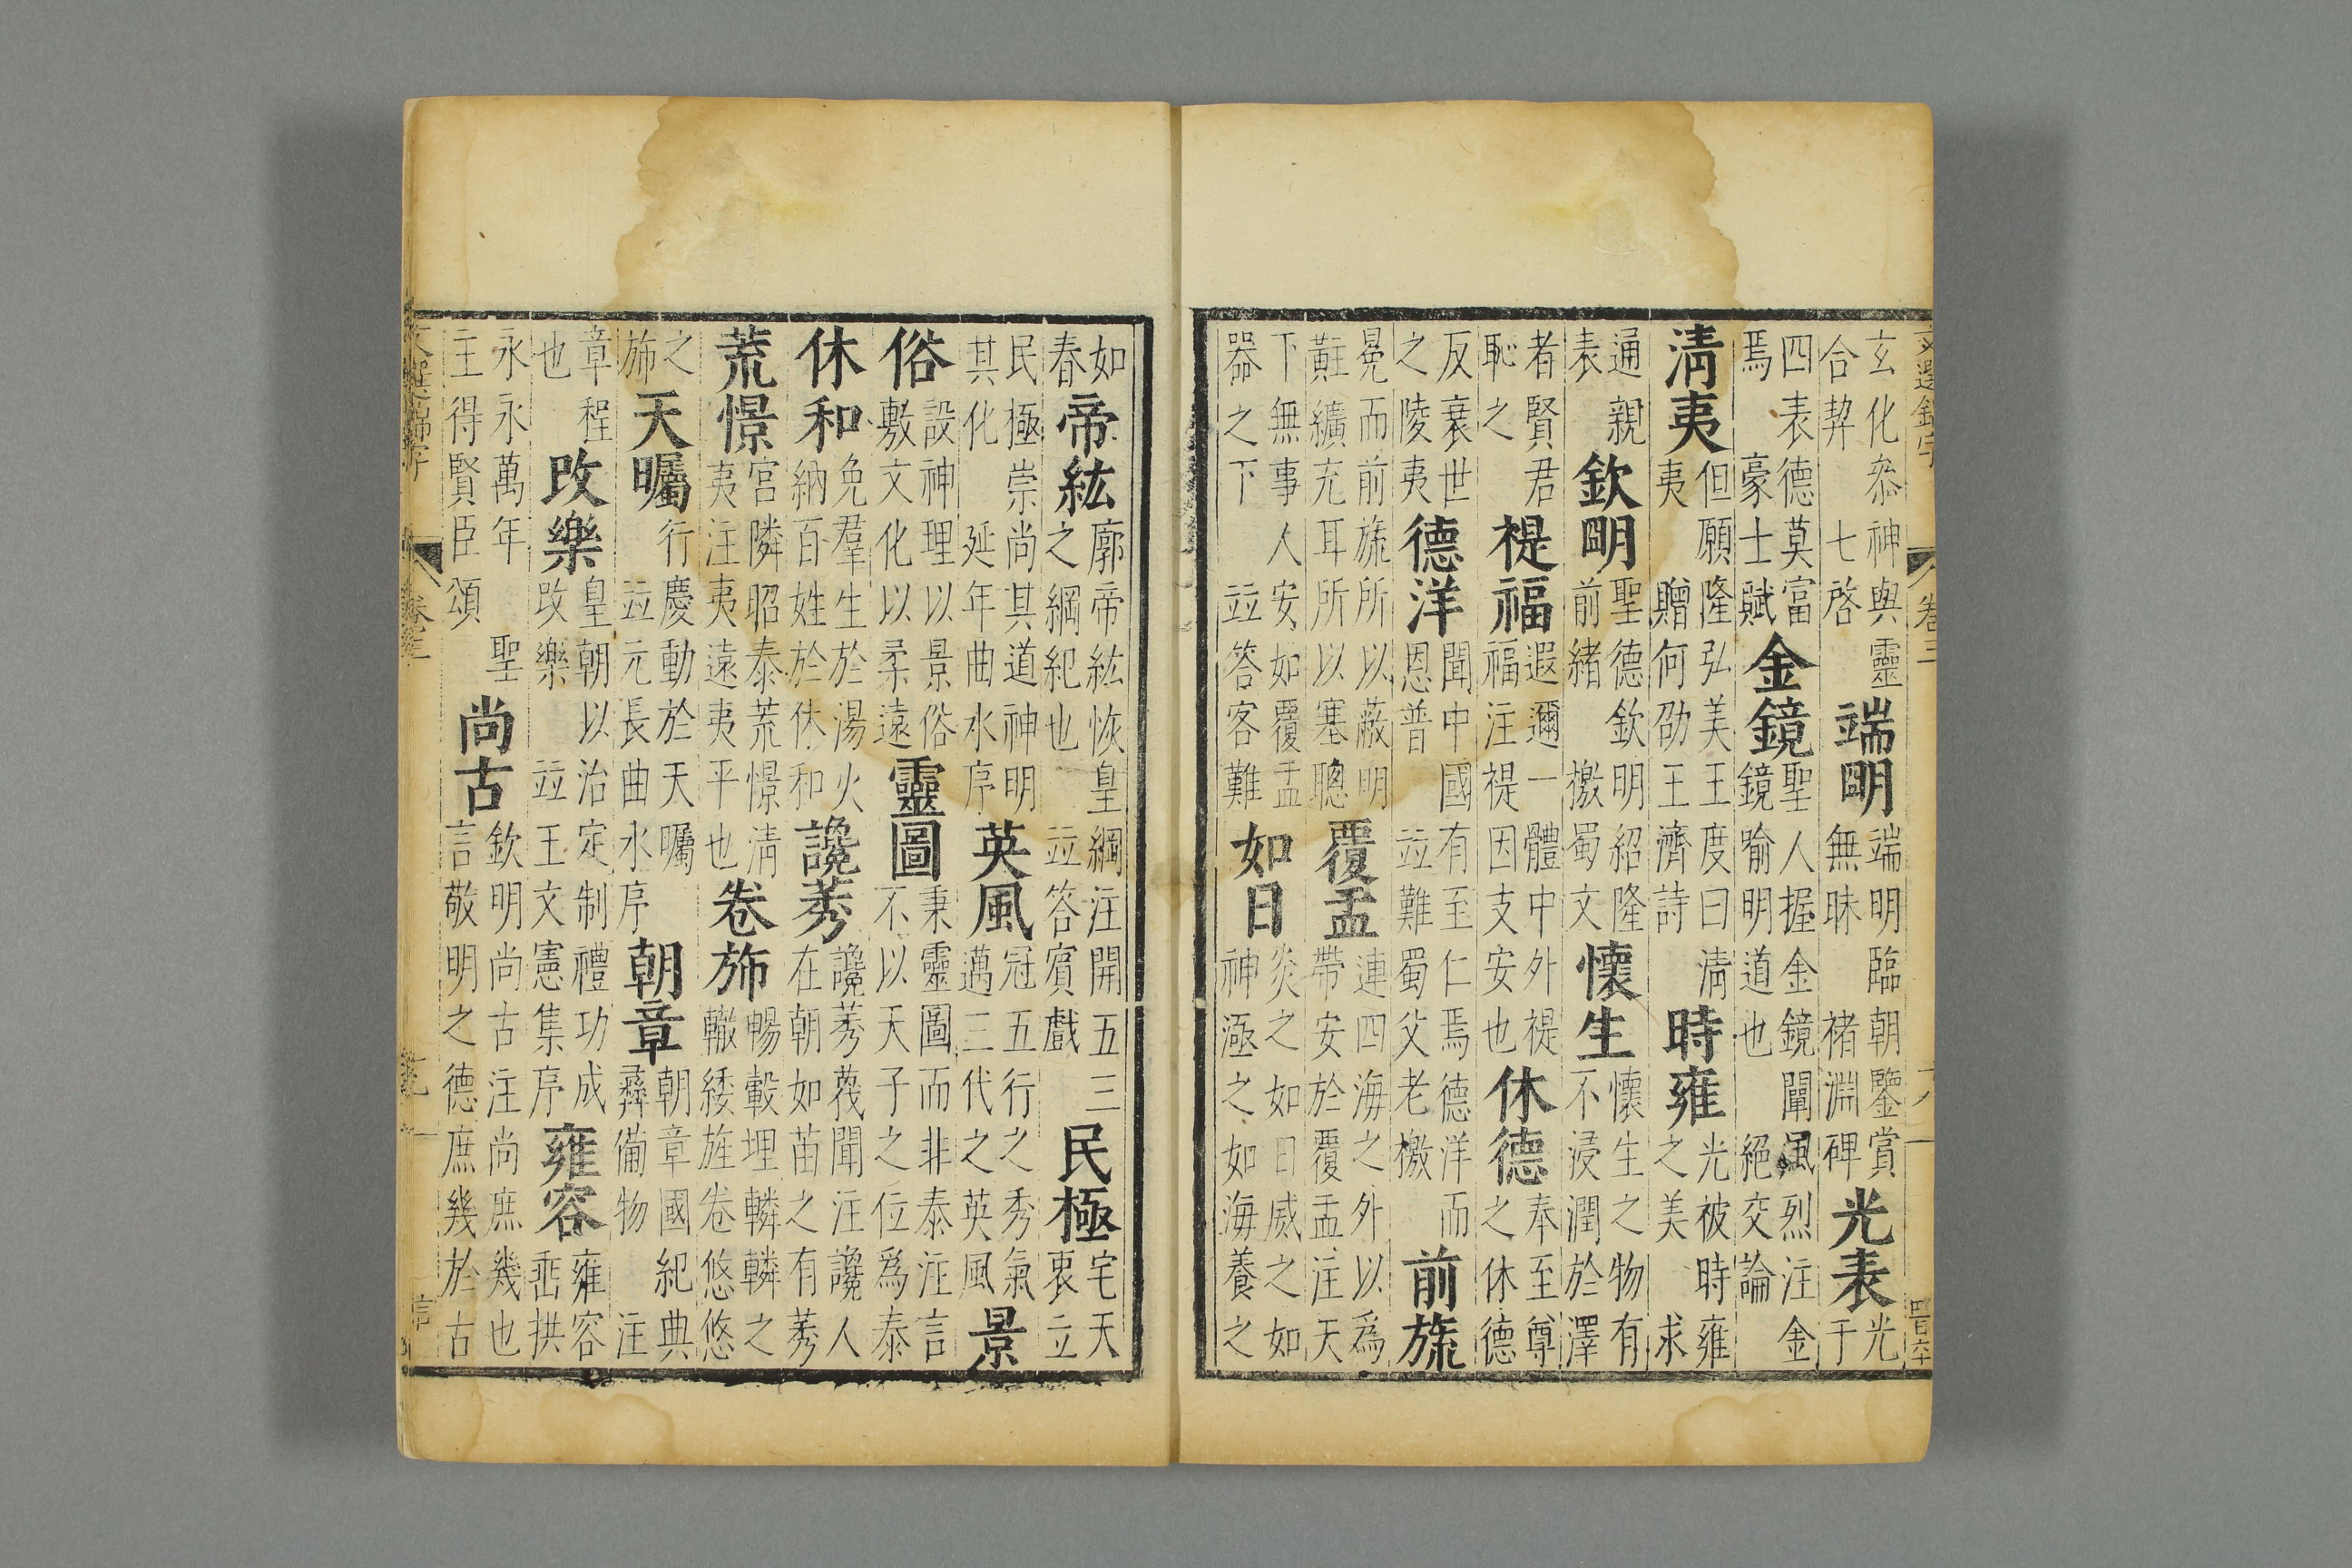 玄化叅神與靈合契 七啓 端明 端明臨朝鑒賞無昧 褚淵碑 光表 光于
四表德莫富焉 豪士賦 金鏡 聖人握金鏡闡風烈注金鏡喻明道也 絕交論
清夷 但願隆弘美王度曰清夷 贈何劭王濟詩 時雍 光被時雍之美 求
通親表 欽明 聖德欽明紹隆前緒 檄蜀文 懷生 懷生之物有不浸潤於澤
者賢君恥之 禔福 遐邇一體中外禔福注禔因支安也 休德 奉至尊之休德
反衰世之陵夷 德洋 聞中國有至仁焉德洋而恩普 並難蜀父老檄 前旒
冕而前旒所以蔽明黈纊充耳所以塞聰 覆盂 連四海之外以爲帶安於覆盂注天
下無事人安如覆盂器之下 並答客難 如日 炎之如日威之如神之如海養之
如春 帝紘 廓帝紘恢皇綱注開五三之綱紀也 並答賓戲 民極 宅天衷立
民極崇尚其道神明其化 延年曲水序 英風 冠五行之秀氣邁三代之英風 景
俗 設神理以景俗敷文化以柔遠 靈圖 秉靈圖而非泰注言不以天子之位爲泰
休和 免羣生於湯火納百姓於休和 讒莠 讒莠蔑聞注讒人在朝如苗之有莠
荒憬 宮隣昭泰荒憬清夷注夷遠夷平也 卷斾 暢轂埋轔轔之轍緌旌卷悠悠
之斾 天矚 行慶動於天矚 並元長曲水序 朝章 朝章國紀典彛備物 注
章程也 攺樂 皇朝以治定制禮功成攺樂 並王文憲集序 雍容 雍容垂拱
永永萬年 聖主得賢臣頌 尚古 欽明尚古注尚庶幾也言敬明之德庶幾於古